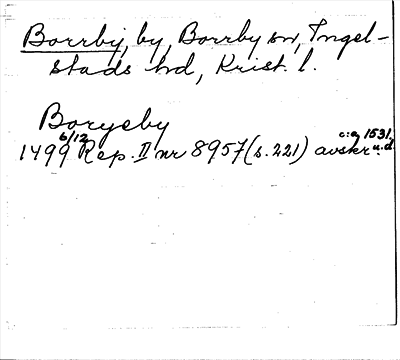 Borrby, by, Borrby sn, Ingel-
stads hd, Krist. l.
Boryeby
1499 6/12 Rep. II nr 8957 (s. 221) avskr. c:a 1531. u.d.